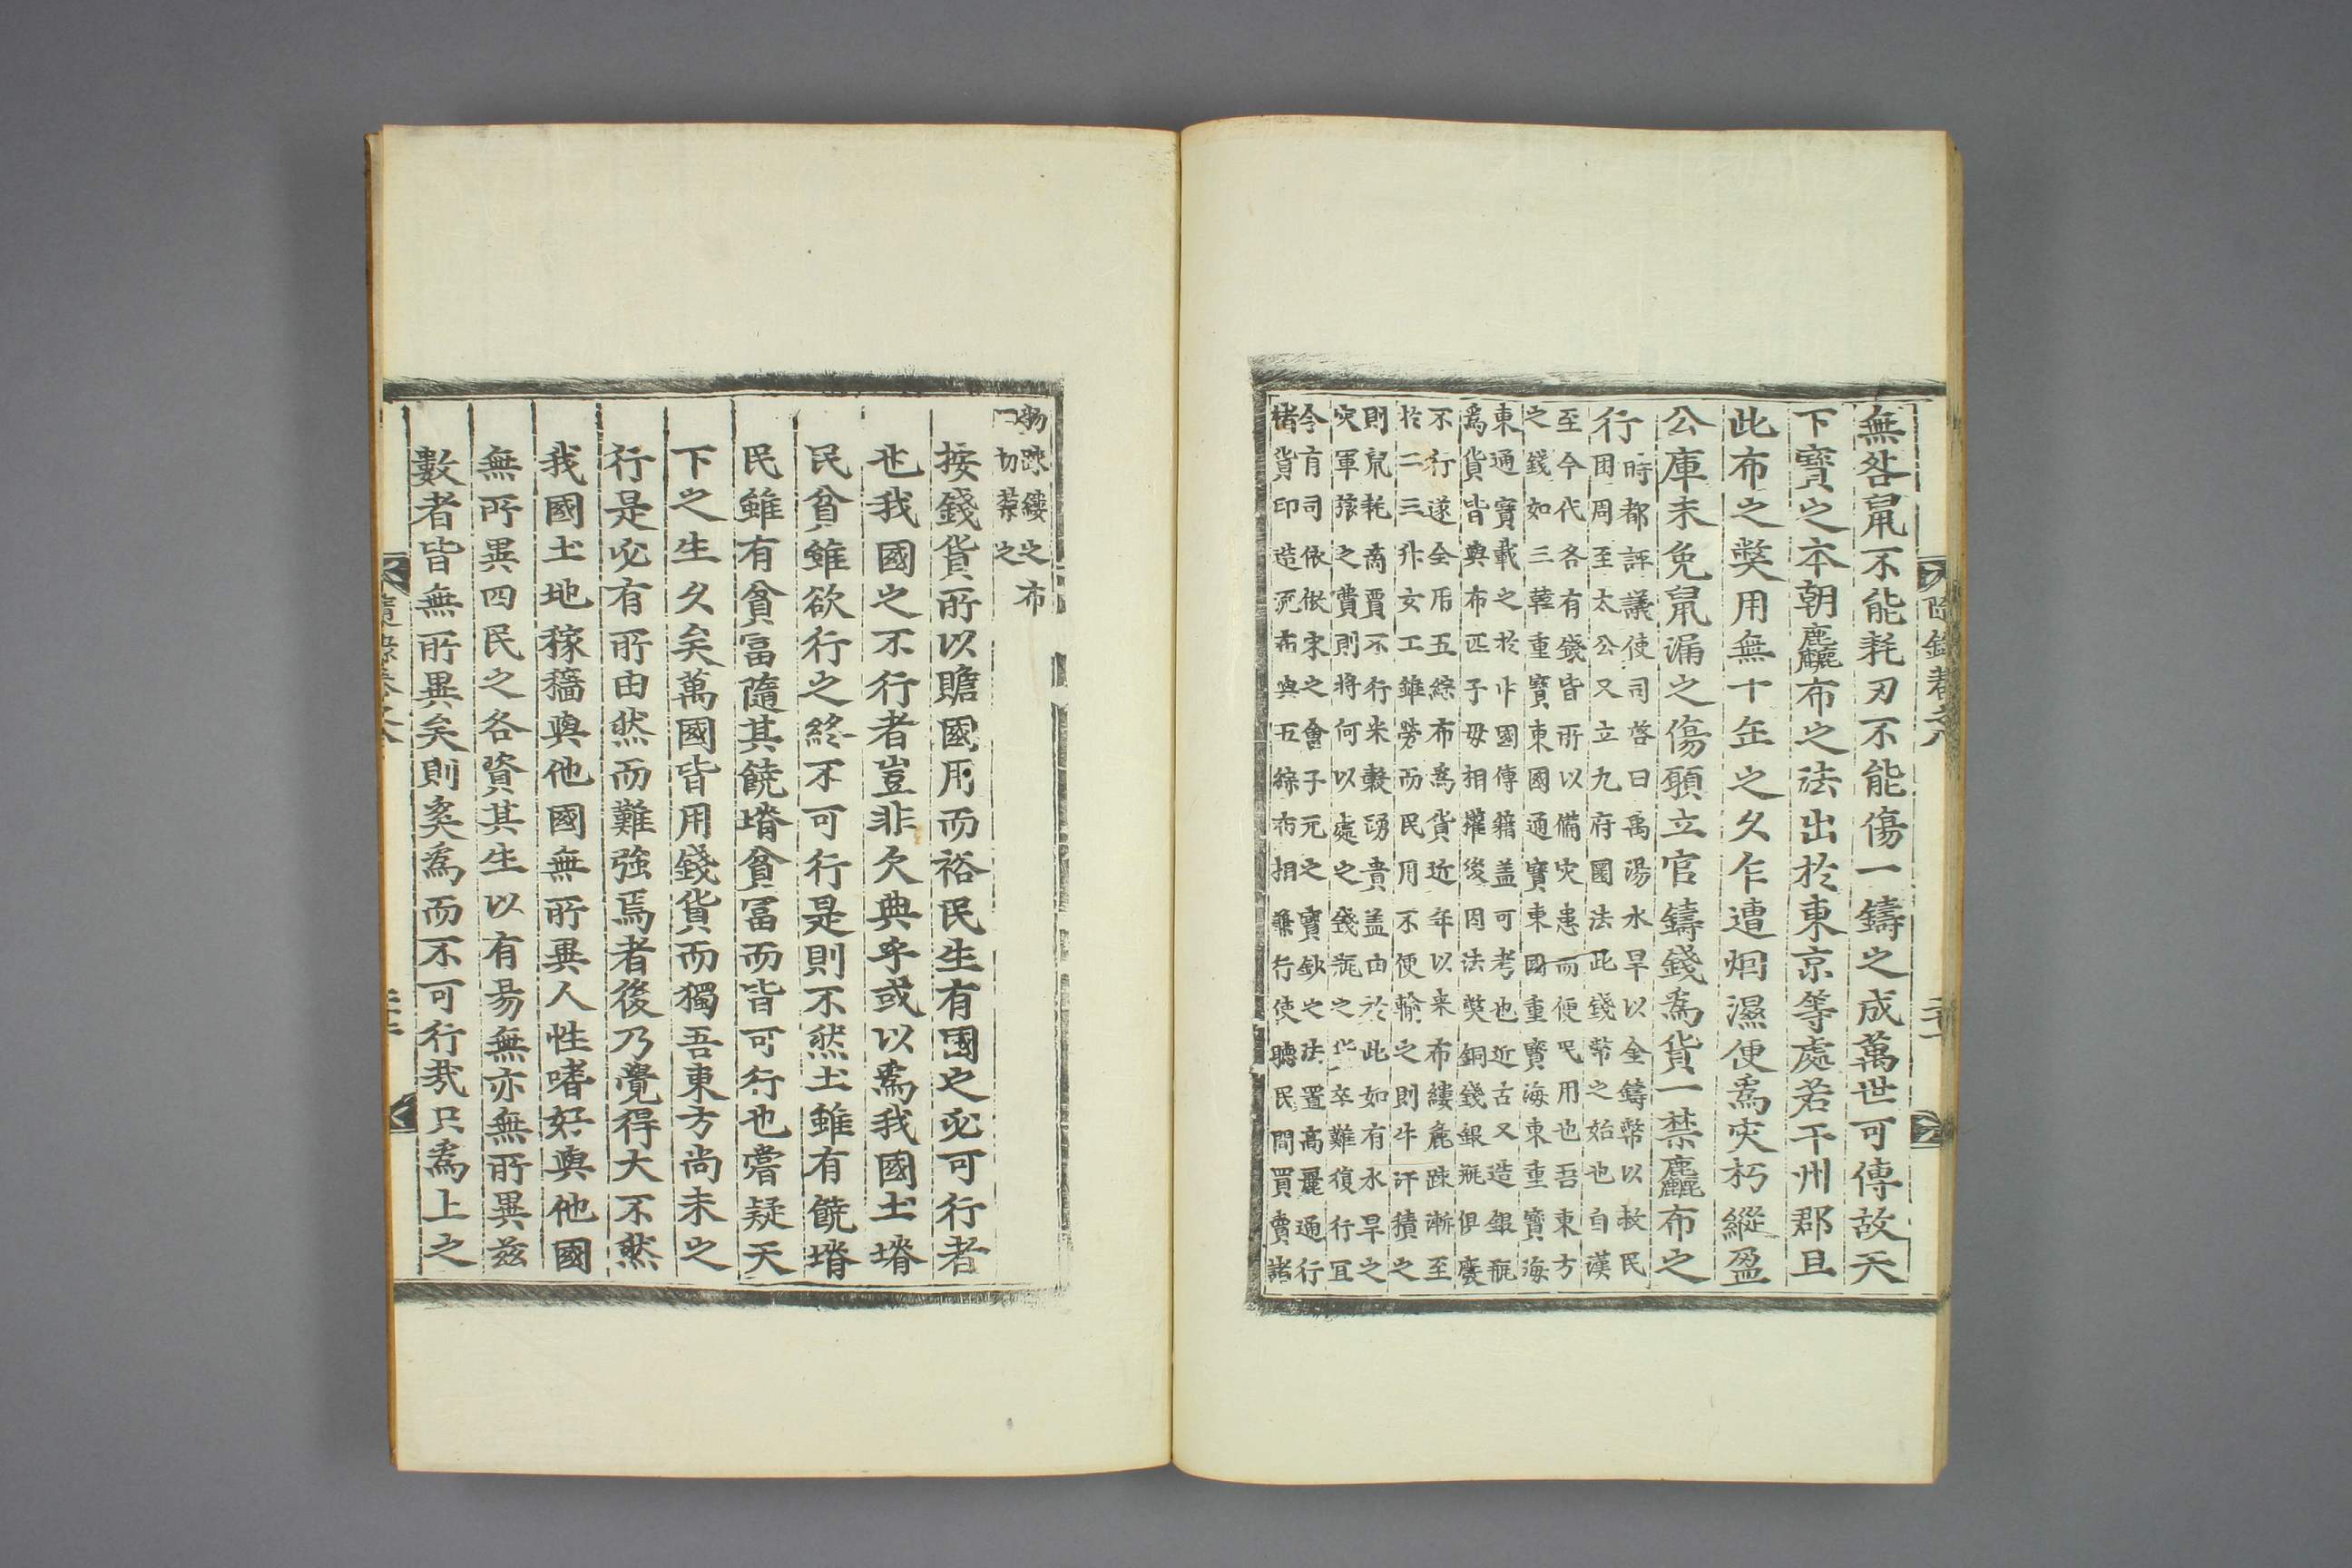 無咎鼠不能耗刃不能傷一鑄之成萬世可傳故天
下寶之本朝麤布之法出於東京等處若干州郡且
此布之獘用無十年之久乍遭烟濕便爲灾朽縱盈
公庫未免鼠漏之傷願立官鑄錢爲貨一禁麤布之
行
時都評議使司啓曰禹湯水旱以金鑄幣以救民
困周至太公又立九府國法此錢幣之始也自漢
至今代各有錢皆所以備灾患而便民用也吾東方
之錢如三韓重寶東國通寶東國重寶海東重寶海
東通寶載之於中國傳籍盖可考也近古又造銀甁
爲貨皆與布匹子母相權後因法獘銅錢銀甁俱廢
不行遂全用五綜布爲貨近年以来布縷麁踈漸至
於二三升女工雖勞而民用不便輸之則牛汗積之
則鼠耗商賈不行米穀踊貴盖由於此如有水旱之
灾軍旅之費則將何以處之錢甁之貨卒難復行冝
令有司依倣宋之會子元之寶鈔之法置高麗通行
楮貨印造流布與五綜布相兼行使聽民間買賣諸
物踈縷之布
一切禁之
按錢貨所以贍國用而裕民生有國之必可行者
也我國之不行者豈非欠典乎或以爲我國土塉
民貧雖欲行之終不可行是則不然土雖有饒塉
民雖有貧富隨其饒塉貧富而皆可行也嘗疑天
下之生久矣萬國皆用錢貨而獨吾東方尚未之
行是必有所由然而難强焉者後乃覺得大不然
我國土地稼穡與他國無所異人性嗜好與他國
無所異四民之各資其生以有易無亦無所異兹
數者皆無所異矣則奚爲而不可行㢤只爲上之
隨錄卷之八